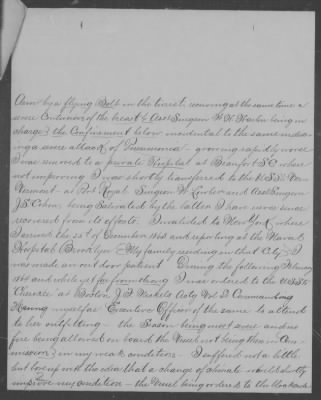 Arm by a flying Bolt in the breast, receiving at the same time a
severe Contusion of the breast & Asst Surgeon W. H. Harlin being in
charge} the Confinement below incidental to the same inducing
a severe attack of Pneumonia — growing rapidly worse
I was removed to a private Hospital at Beaufort S.C. where
not improving I was shortly transferred to the U.S.S.
Vermont — at Port Royal Surgeon and Asst Surgeon
J.S. Cohen being Salivated by the latter I have never since
recovered from its effects. Invalided to New York, where
I arrived the 25th of December 1863 and reporting at the Naval
Hospital Brooklyn — My family residing in that City — I
was made an out door patient During the following February
1864 and while yet far from strong I was ordered to the U.S.S.
Cherokee at Boston J. F. Nickels Actg Vol Lt Commanding
myself as Executive Officer of the same to attend
to her outfitting — the Season being most severe and no
fire being allowed on board the Vessel not being then in Com-
mission} in my weak condition — I suffered not a little
but bore up with the idea that a change of climate would shortly
improve my condition — the Vessel being ordered to the blockade